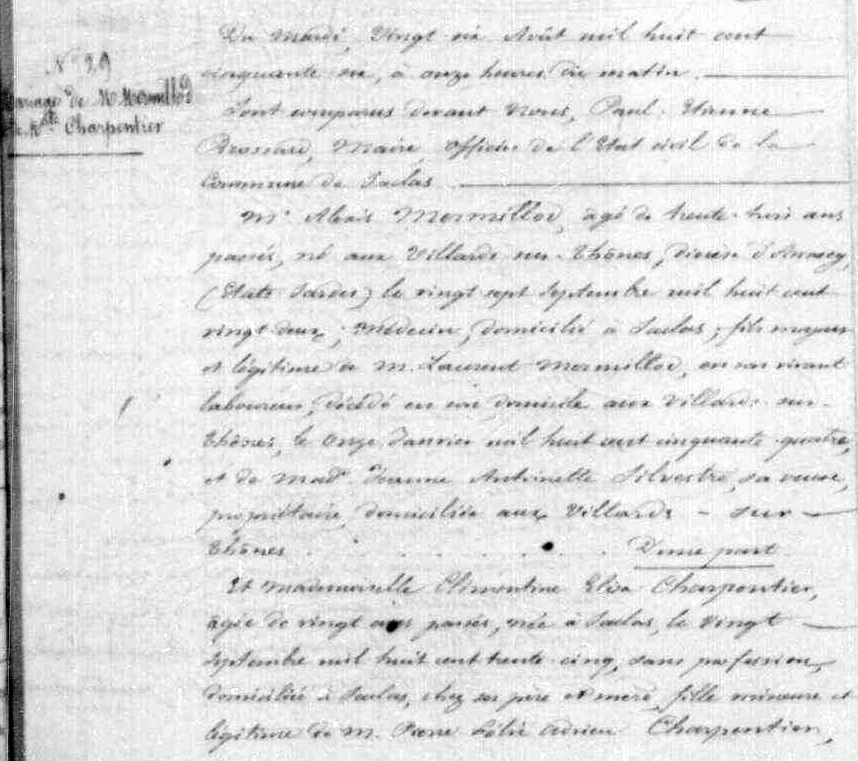 N° 29
Mariage de Mr Mermillod
et Melle Charpentier
Du mardi, Vingt six Août mil huit cent
cinquante six, à onze heures du matin.
Sont comparus devant Nous, Paul Etienne
Maire, Officier de l'Etat civil de la
Commune de Saclas
Mr. Alexis Mermillod, âgé de trente-trois ans
passés, né aux Villards sur-Thônes, diocèse d'Annecy,
(Etats Sardes) le vingt sept Septembre mil huit cent
vingt deux, Médecin, domicilié à Saclas, fils majeur
et légitime de M. Laurent Mermillod, en son vivant
laboureur, décédé en son domicile aux Villards-sur-
Thônes, le onze Janvier mil huit cent cinquante quatre,
et de Made. Jeanne Antoinette Silvestre, sa veuve,
propriétaire, domiciliée aux Villards - sur
Thônes . . . . . . . D'une part
Et Mademoiselle Clémentine Elisa Charpentier,
âgée de vingt ans passés, née à Saclas, le Vingt
Septembre mil huit cent trente-cinq, sans profession,
domiciliée à Saclas, chez ses père et mère, fille mineure et
légitime de M. Pierre Adrien Charpentier,